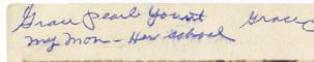 Grace Pearl Yount Grace
my mom - Her school